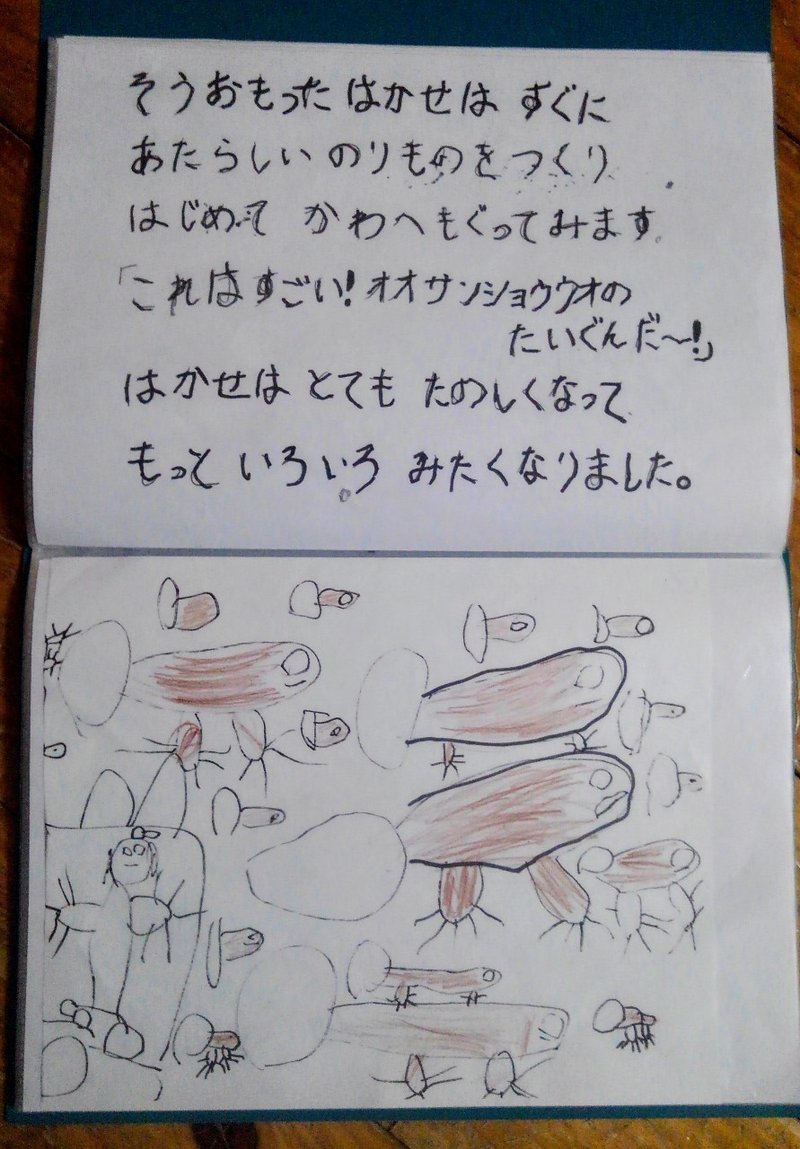 そうおもった はかせは すぐに
あたらしい のりものを つくり
はじめて かわへ もぐってみます。
「これはすごい!オオサンショウウオの
たいぐんだ～!」
はかせは とても たのしくなって
もっと いろいろ みたくなりました。